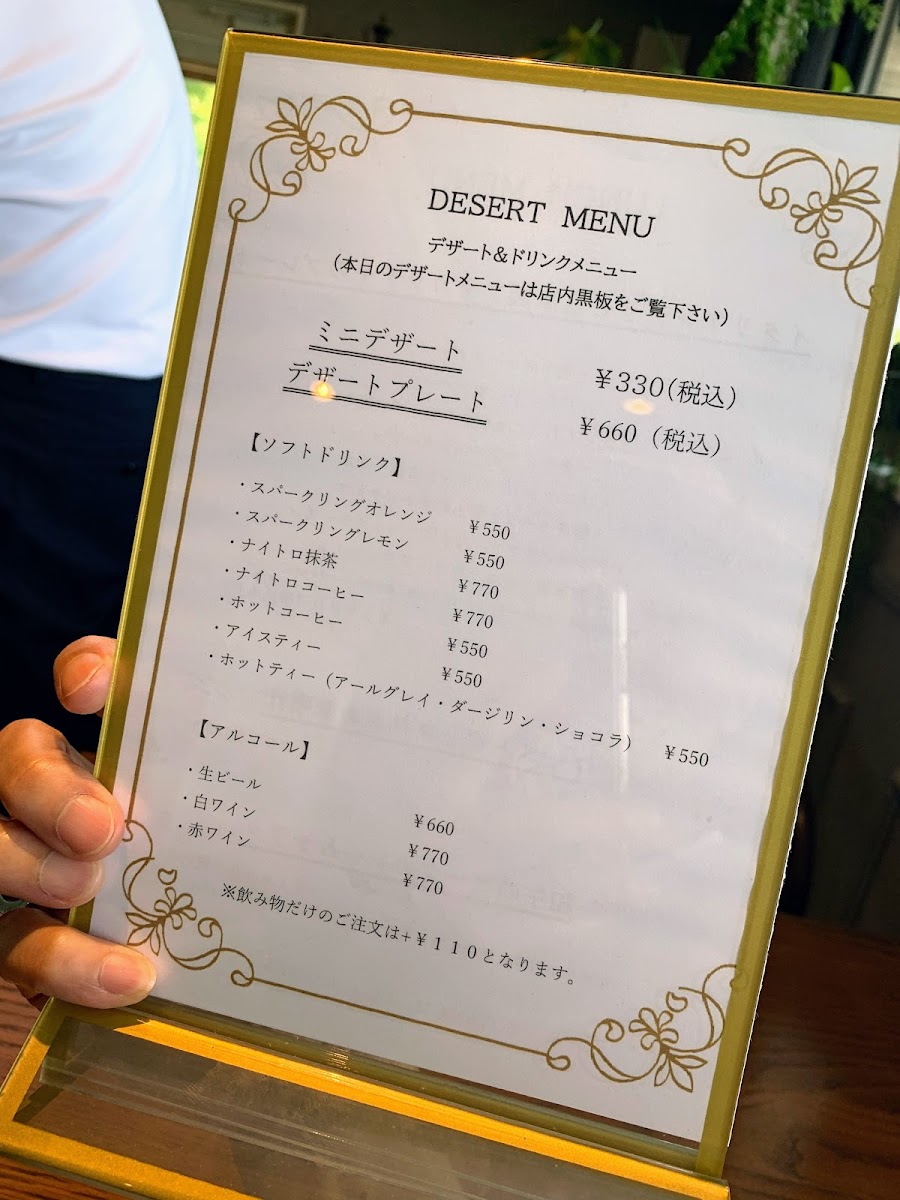 DESERT MENU
デザート&ドリンクメニュー
(本日のデザートメニューは店内黒板をご覧下さい)
ミニデザート ¥330(税込)
デザートプレート ¥660 (税込)
【ソフトドリンク】
・スパークリングオレンジ ¥550
・スパークリングレモン ¥550
・ナイトロ抹茶 ¥770
・ナイトロコーヒー ¥770
・ホットコーヒー ¥550
・アイスティー ¥550
・ホットティー(アールグレイ・ダージリン・ショコラ) ¥550
【アルコール】
・生ビール ¥660
・白ワイン ¥770
・赤ワイン ¥770
※飲み物だけのご注文は+¥110となります。